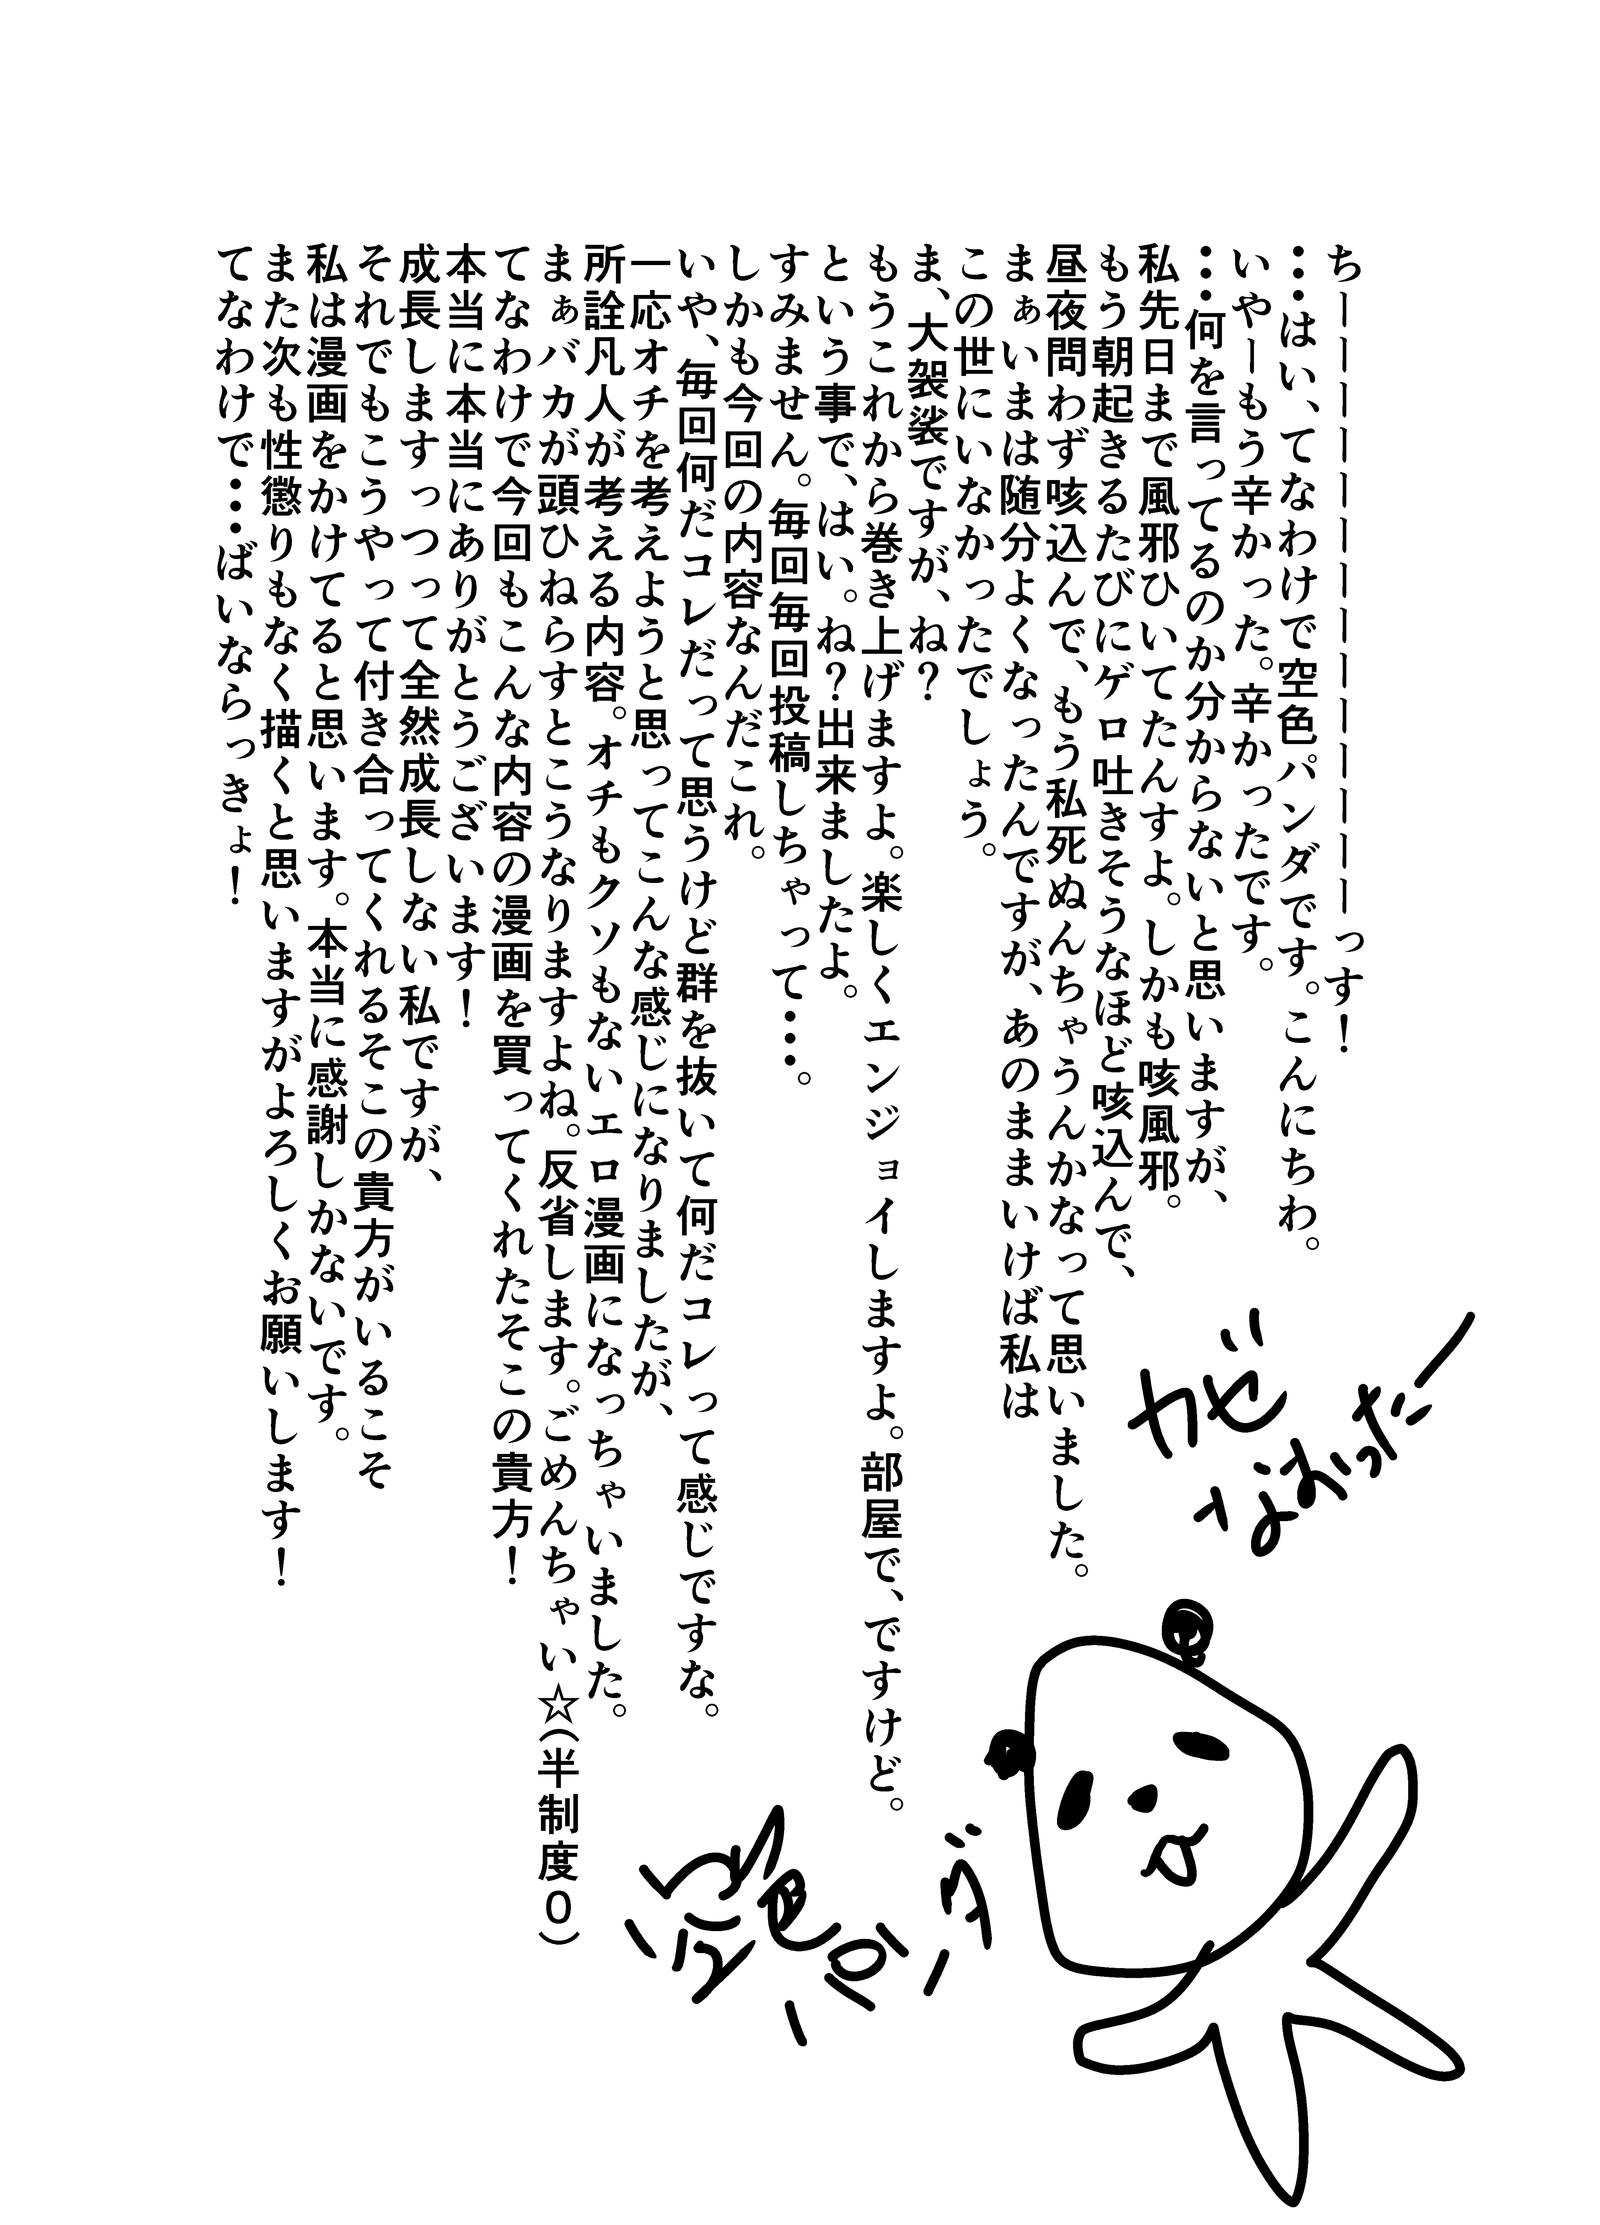 ちーーーーーーーーーーーーーーっす！
…はい、てなわけで空色パンダです。こんにちわ。
いやーもう辛かった。辛かったです。
…何を言ってるのか分からないと思いますが、
私先日まで風邪ひいてたんすよ。しかも咳風邪。
もう朝起きるたびにゲロ吐きそうなほど咳込んで、
昼夜問わず咳込んで、もう私死ぬんちゃうんかなって思いました。
まぁいまは随分よくなったんですが、あのままいけば私は
この世にいなかったでしょう。
ま、大袈裟ですが、ね？
もうこれから巻き上げますよ。楽しくエンジョイしますよ。部屋で、ですけど。
という事で、はい。ね？出来ましたよ。
すみません。毎回毎回投稿しちゃって…。
しかも今回の内容なんだこれ。
いや、毎回何だコレだって思うけど群を抜いて何だコレって感じですな。
一応オチを考えようと思ってこんな感じになりましたが、
所詮凡人が考える内容。オチもクソもないエロ漫画になっちゃいました。
まぁバカが頭ひねらすとこうなりますよね。反省します。ごめんちゃい☆（半制度０）
てなわけで今回もこんな内容の漫画を買ってくれたそこの貴方！
本当に本当にありがとうございます！
成長しますっつって全然成長しない私ですが、
それでもこうやって付き合ってくれるそこの貴方がいるこそ
私は漫画をかけてると思います。本当に感謝しかないです。
また次も性懲りもなく描くと思いますがよろしくお願いします！
てなわけで…ばいならっきょ！
カゼ
なおったー
空色パンダ